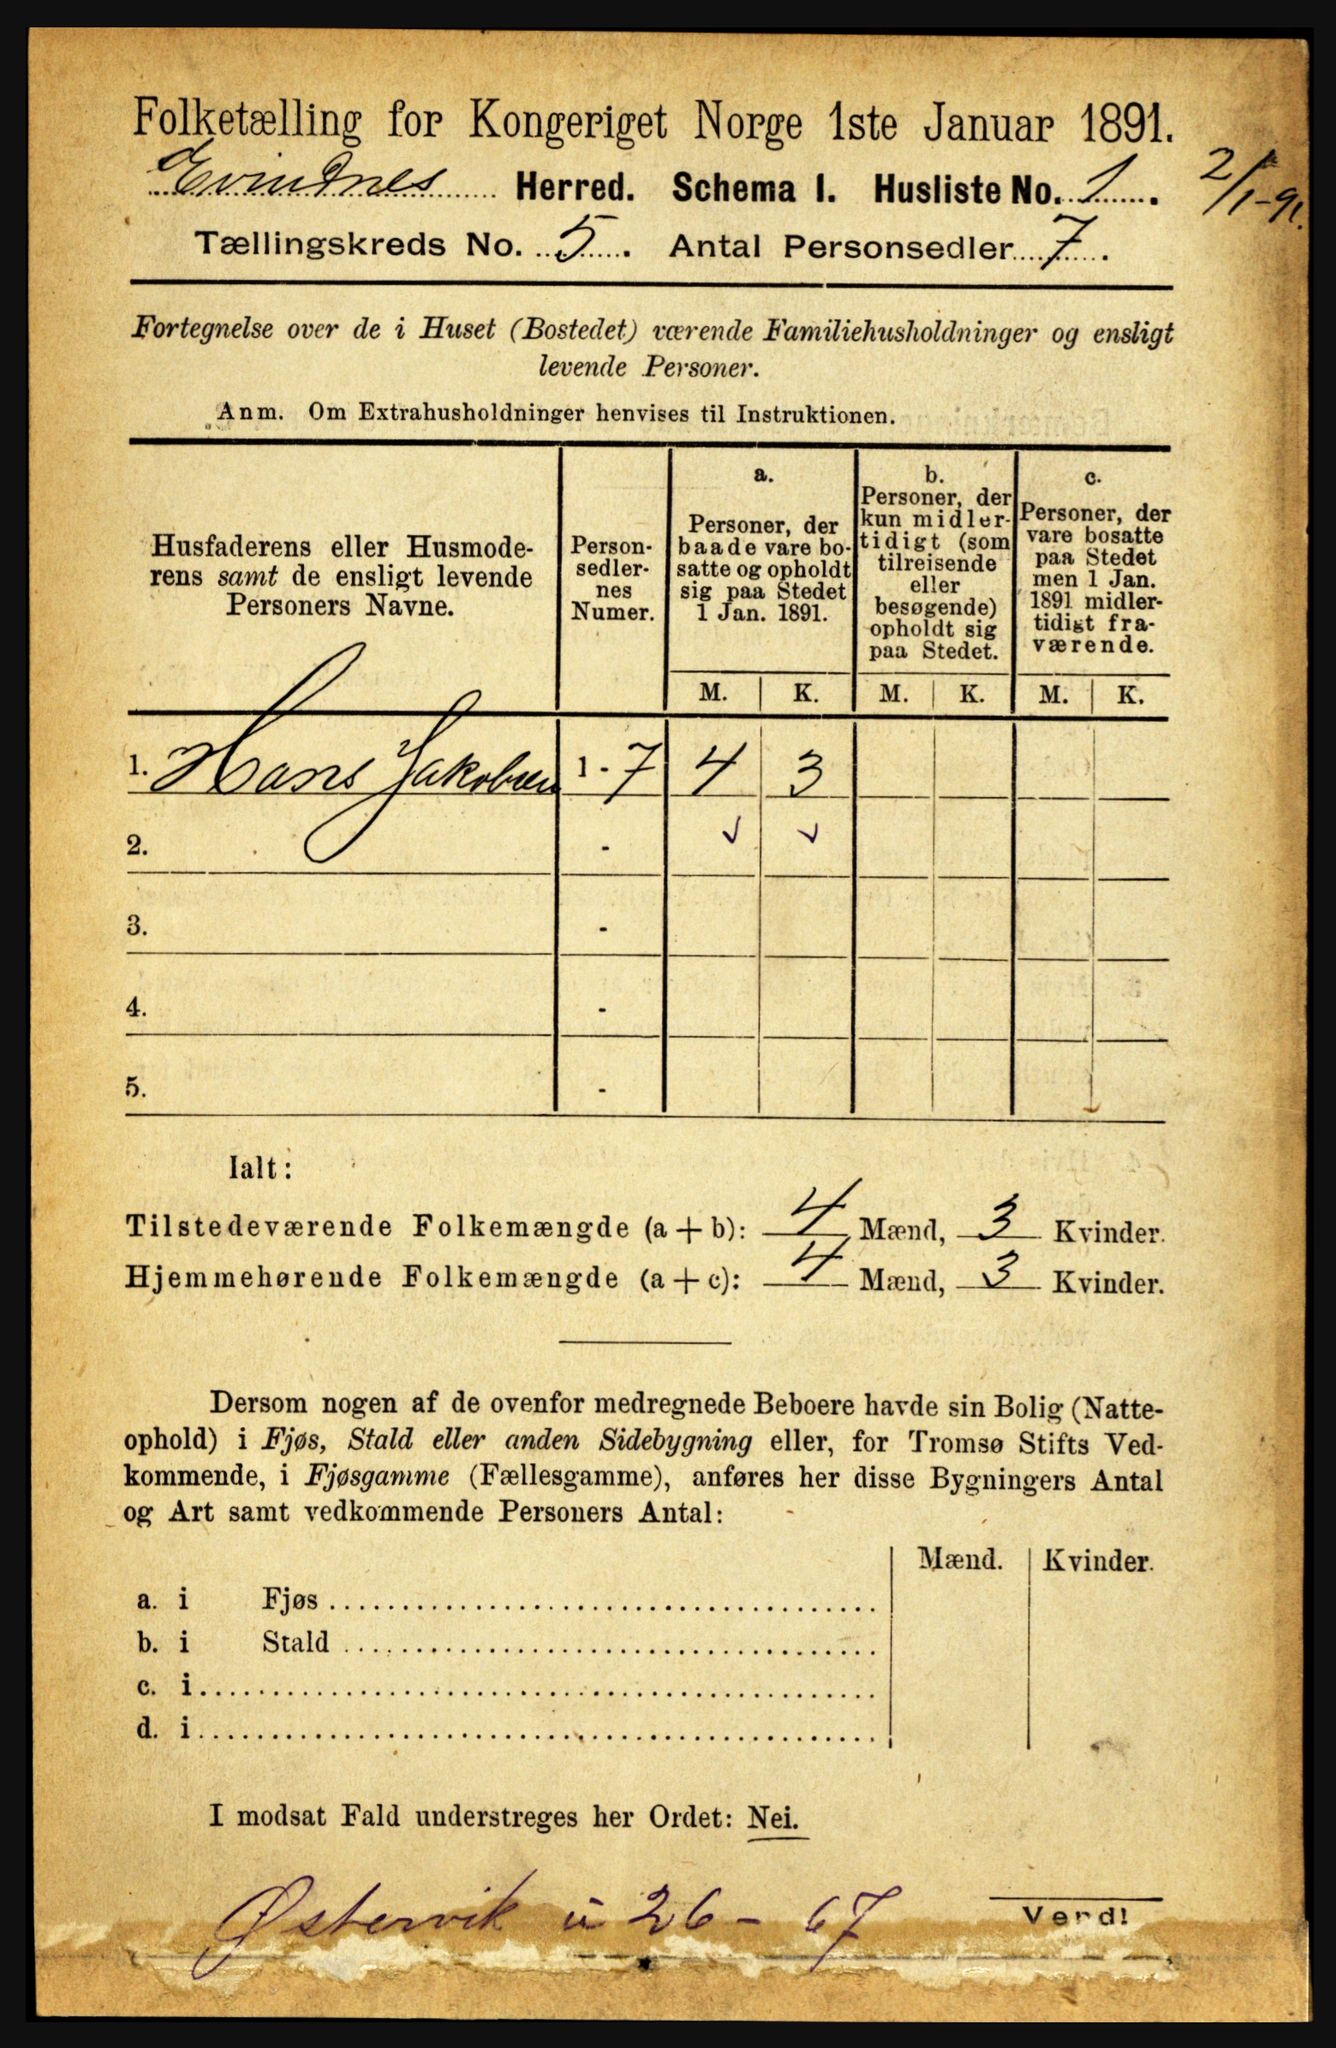 Folketælling for Kongeriget Norge 1ste Januar 1891.
Evindnes Herred. Schema I. Husliste No. 1.
2/1-91.
Tællingskreds No. 5. Antal Personsedler 7.
Fortegnelse over de i Huset (Bostedet) værende Familiehusholdninger og ensligt
levende Personer.
Anm. Om Extrahusholdninger henvises til Instruktionen.
Husfaderens eller Husmode-
rens samt de ensligt levende
Personers Navne.
Person-
sedler-
nes
Numer.
a.
Personer, der
baade vare bo-
satte og opholdt
sig paa Stedet
1 Jan. 1891.
b.
Personer, der
kun midler-
tidigt (som
tilreisende
eller
besøgende)
opholdt sig
paa Stedet.
c.
Personer, der
vare bosatte
paa Stedet
men 1 Jan.
1891 midler-
tidigt fra-
værende.
M. K. M. K. M. K.
1. Hans Jakobsen 1 - 7 4 3
2. - ✓ ✓
3. -
4. -
5. -
Ialt:
Tilstedeværende Folkemængde (a + b): 4 Mænd, 3 Kvinder.
Hjemmehørende Folkemængde (a + c): 4 Mænd, 3 Kvinder.
Dersom nogen af de ovenfor medregnede Beboere havde sin Bolig (Natte-
ophold) i Fjøs, Stald eller anden Sidebygning eller, for Tromsø Stifts Ved-
kommende, i Fjøsgamme (Fællesgamme), anføres her disse Bygningers Antal
og Art samt vedkommende Personers Antal:
Mænd. Kvinder.
a. i Fjøs
b. i Stald
c. i
d. i
I modsat Fald understreges her Ordet: Nei.
Østervik 26 - 67
Vend!